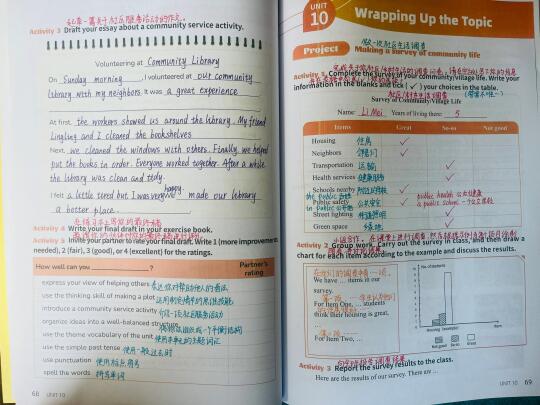 起草一篇关于社区服务活动的作文.
Activity 3 Draft your essay about a community service activity.
Volunteering at Community Library
On Sunday morning, I volunteered at our community
library with my neighbors. It was a great experience.
At first, the workers showed us around the library. My friend
Lingling and I cleaned the bookshelves.
Next, we cleaned the windows with others. Finally, we helped
put the books in order. Everyone worked together. After a while
the library was clean and tidy.
I felt a little tired but I was very happy. made our library
a better place.
Activity 4 Write your final draft in your exercise book.
Activity 5 Invite your partner to rate your final draft. Write 1 (more improvements
needed), 2 (fair), 3 (good), or 4 (excellent) for the ratings.
How well can you ?
Partner's
rating
express your view of helping others 表达你对帮助他人的看法
use the thinking skill of making a plot 运用制定情节的思维技能
introduce a community service activity 介绍一次社区服务活动
organize ideas into a well-balanced structure
use the theme vocabulary of the unit 使用本单元的主题词汇
use the simple past tense 使用一般过去时
use punctuation 使用标点符号
spell the words 拼写单词
68 UNIT 10
UNIT
10
Wrapping Up the Topic
做一次社区生活调查
Project Making a survey of community life
Activity 1 Complete the survey of your community/village life. Write your
information in the blanks and tick (✓) your choices in the table.
Survey of Community/Village Life
Name: Li Mei Years of living there: 5
Items Great So-so Not good
Housing 住房 ✓
Neighbors 邻居们 ✓
Transportation 运输 ✓
Health services 健康服务 ✓
Schools nearby 附近的学校 ✓
Public safety 公共安全 ✓
public health 公共健康
a public school 一个公立学校
in public 公开地
Street lighting 街道照明 ✓
Green space 绿地 ✓
Activity 2 Group work. Carry out the survey in class, and then draw a
chart for each item according to the example and discuss the results.
We have … items in our
survey.
For Item One, … students
think their housing is great,
…
For Item Two, …
No. of students
Housing Item
Not good So-so Great
Activity 3 Report the survey results to the class.
Here are the results of our survey. There are …
UNIT 10 69